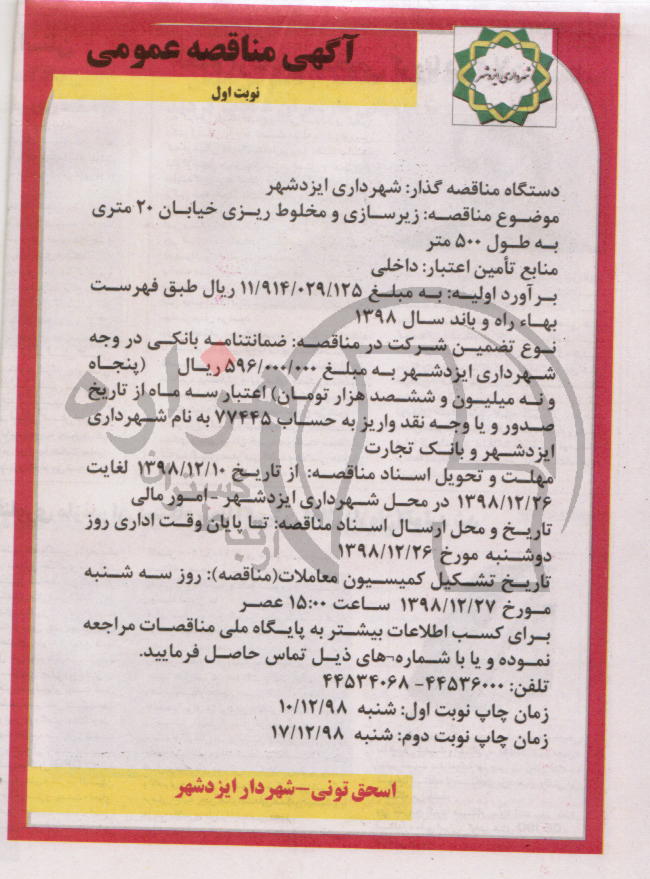 آگهی مناقصه عمومی
نوبت اول
شهرداری ایزدشهر
دستگاه مناقصه گذار: شهرداری ایزدشهر
موضوع مناقصه: زیرسازی و مخلوط ریزی خیابان ۲۰ متری
به طول ۵۰۰ متر
منابع تأمین اعتبار: داخلی
برآورد اولیه: به مبلغ ۱۱/۹۱۴/۰۲۹/۱۲۵ ریال طبق فهرست
بهاء راه و باند سال ۱۳۹۸
نوع تضمین شرکت در مناقصه: ضمانتنامه بانکی در وجه
شهرداری ایزدشهر به مبلغ ۵۹۶/۰۰۰/۰۰۰ ریال (پنجاه
و نه میلیون و ششصد هزار تومان) اعتبار سه ماه از تاریخ
صدور و یا وجه نقد واریز به حساب ۷۷۴۴۵ به نام شهرداری
ایزدشهر و بانک تجارت
مهلت و تحویل اسناد مناقصه: از تاریخ ۱۳۹۸/۱۲/۱۰ لغایت
۱۳۹۸/۱۲/۲۶ در محل شهرداری ایزدشهر - امور مالی
تاریخ و محل ارسال اسناد مناقصه: تا پایان وقت اداری روز
دوشنبه مورخ ۱۳۹۸/۱۲/۲۶
تاریخ تشکیل کمیسیون معاملات(مناقصه): روز سه شنبه
مورخ ۱۳۹۸/۱۲/۲۷ ساعت ۱۵:۰۰ عصر
برای کسب اطلاعات بیشتر به پایگاه ملی مناقصات مراجعه
نموده و یا با شماره¬های ذیل تماس حاصل فرمایید.
تلفن: ۴۴۵۳۶۰۰۰- ۴۴۵۳۴۰۶۸
زمان چاپ نوبت اول: شنبه ۱۰/۱۲/۹۸
زمان چاپ نوبت دوم: شنبه ۱۷/۱۲/۹۸
اسحق تونی-شهردار ایزدشهر